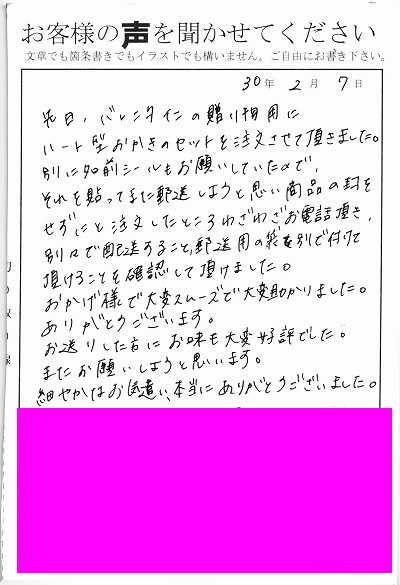 お客様の声を聞かせてください
文章でも箇条書きでもイラストでも構いません。ご自由にお書き下さい。
30年 2月 7日
先日、バレンタインの贈り物用に
ハート型おかきのセットを注文させて頂きました。
別に名前シールもお願いしていたので、
それを貼ってまた郵送しようと思い商品の封を
せずにと注文したところわざわざお電話頂き、
別々で配送すること、郵送用の袋を別で付けて
頂けることを確認して頂けました。
おかげ様で大変スムーズで大変助かりました。
ありがとうございます。
お送りした方にお味も大変好評でした。
またお願いしようと思います。
細やかなお気遣い、本当にありがとうございました。